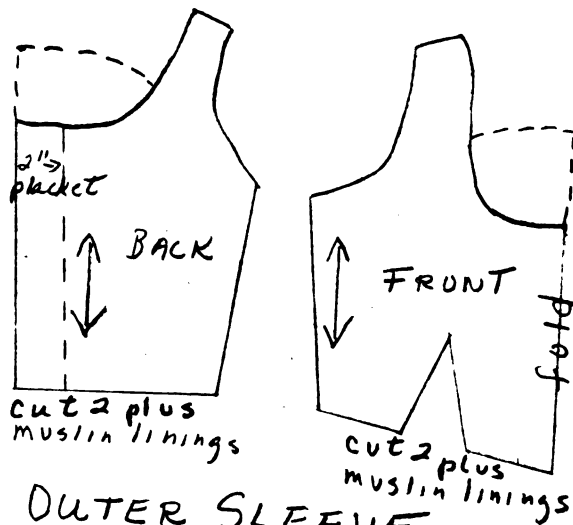 2"→
placket
BACK
cut 2 plus
muslin linings
FRONT
fold
cut 2 plus
muslin linings
OUTER SLEEVE